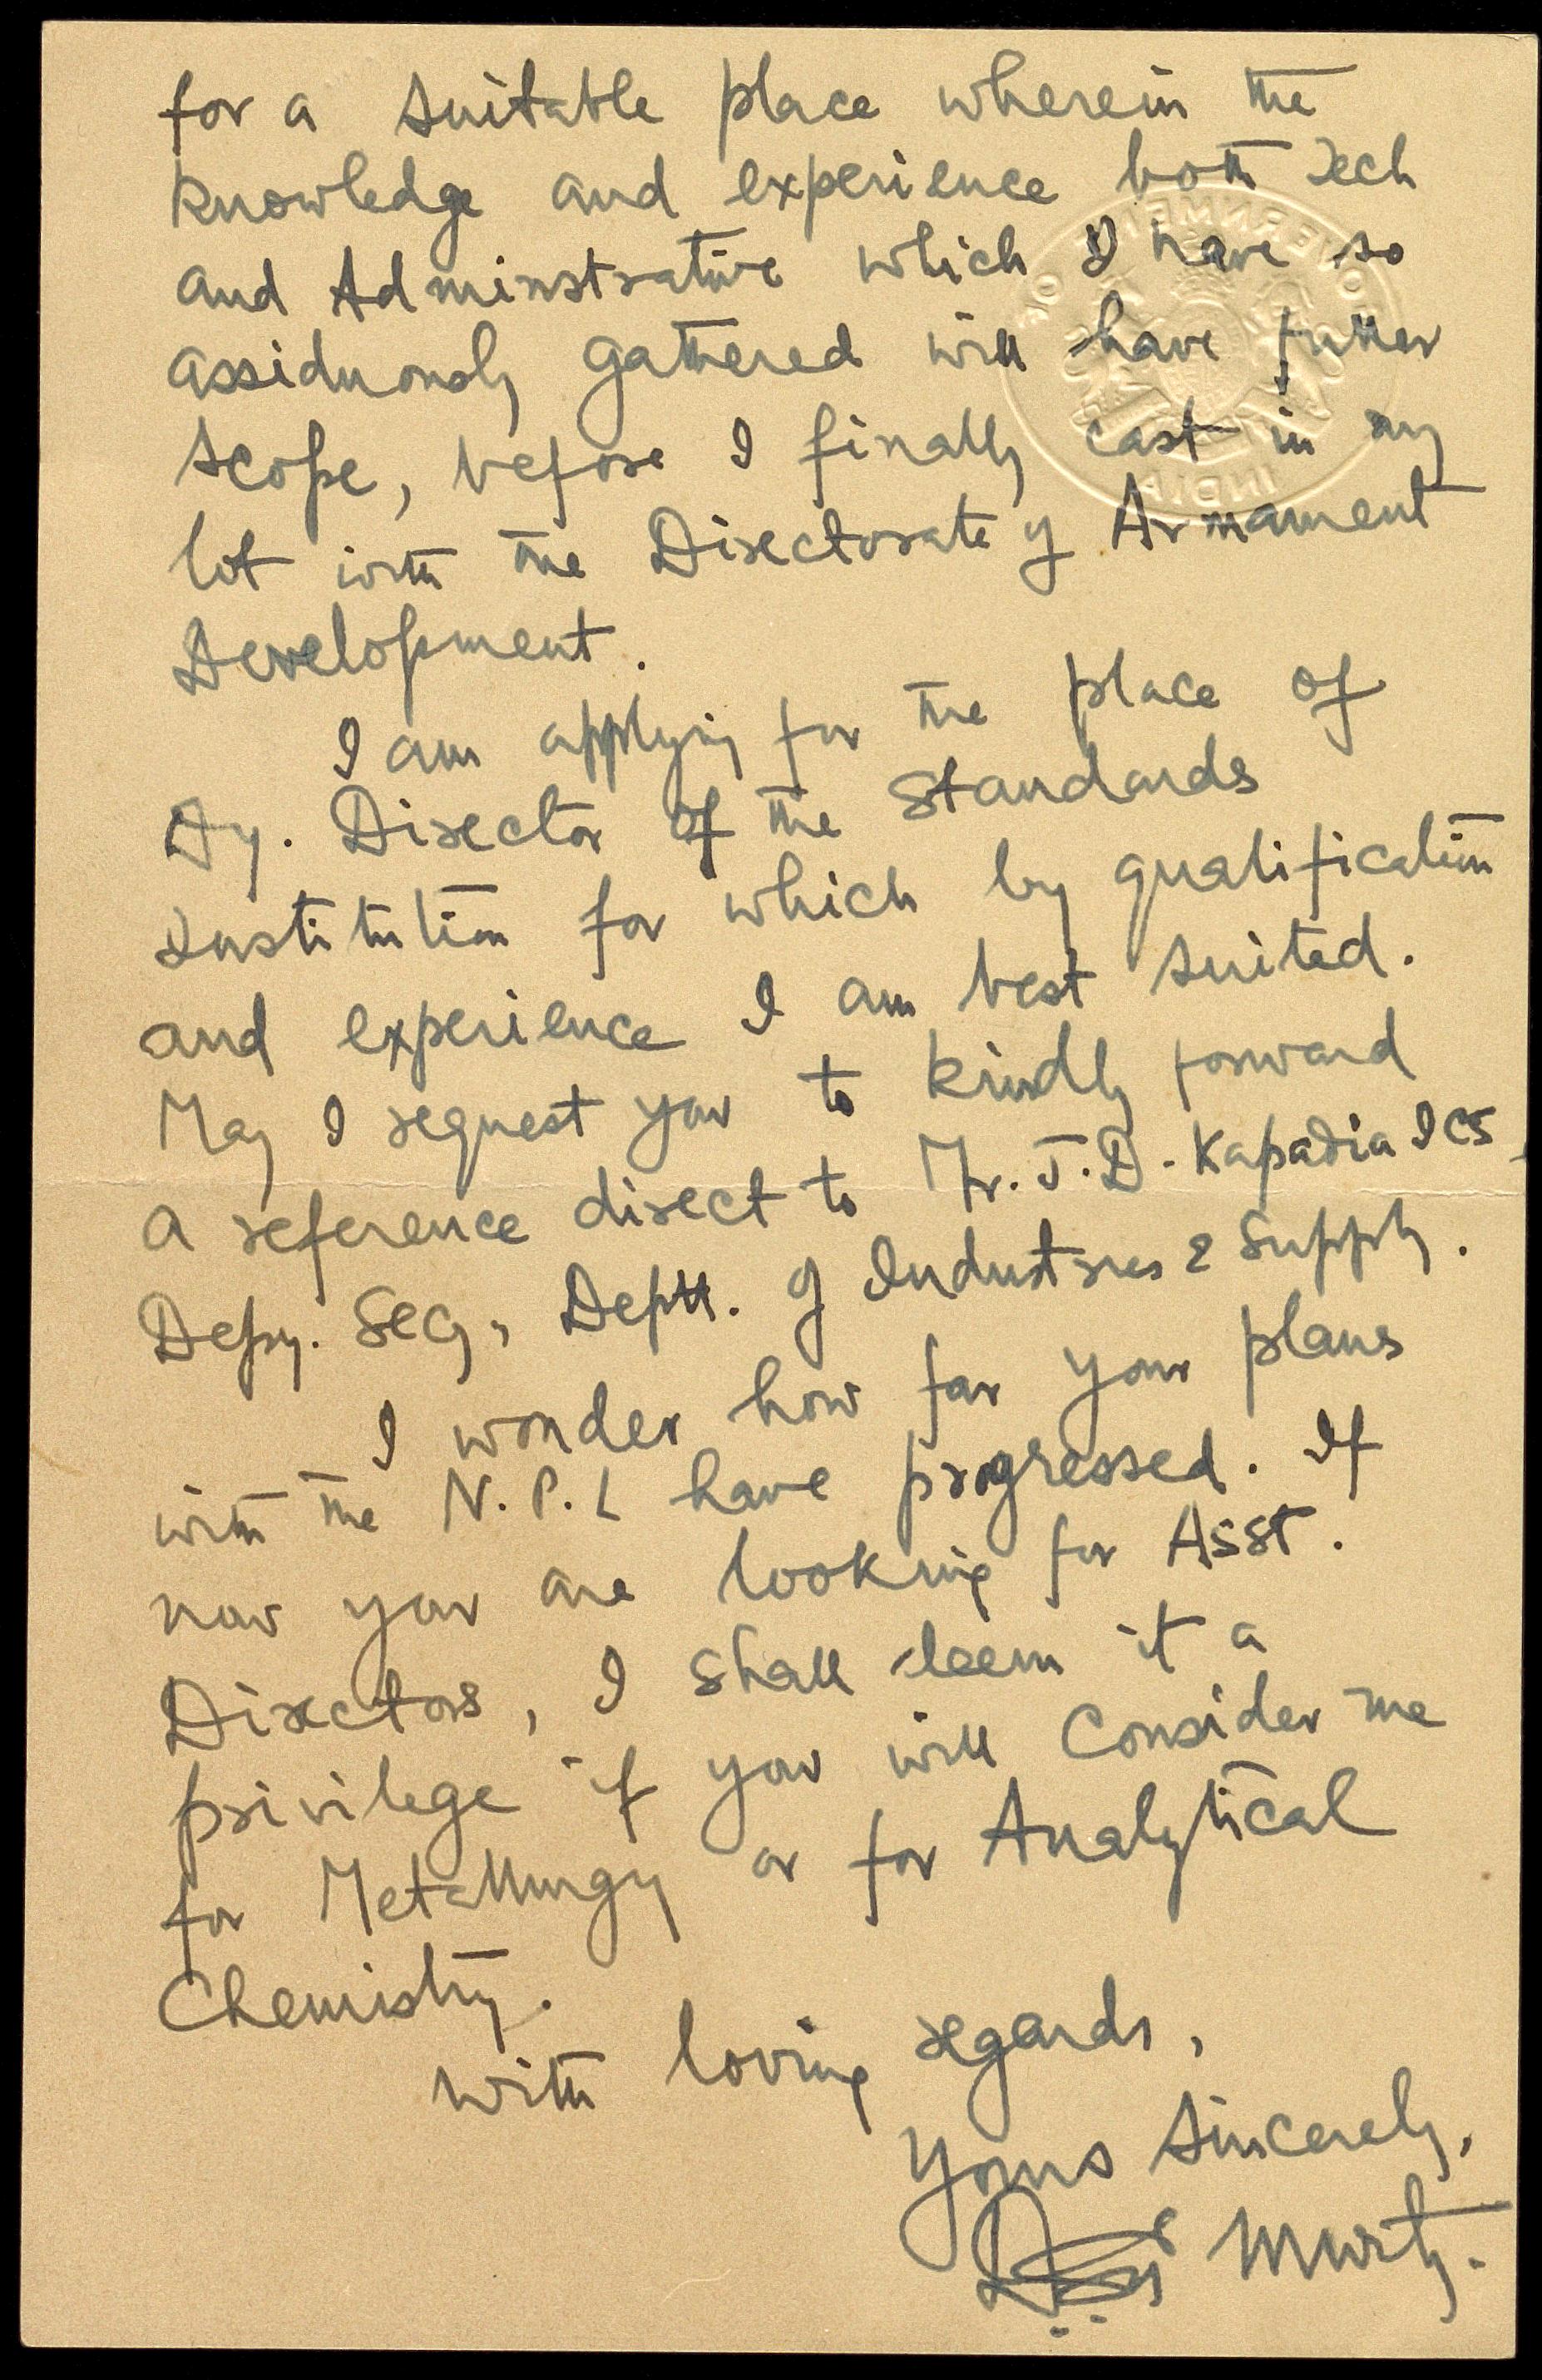 for a suitable place wherein the
knowledge and experience both Tech
and Adminstrative which I have so
assiduously gathered will have fuller
scope, before I finally cast in my
lot with the Directorate of Armament
Development.
I am applying for the place of
Dy. Director of the Standards
Institution for which by qualification
and experience I am best suited.
May I request you to kindly forward
a reference direct to Mr. J.D. Kapadia ICS,
Depy. Secy, Deptt. of Industries & Supply.
I wonder how far your plans
with the N.P.L have progressed. If
now you are looking for Asst.
Directors, I shall deem it a
privilege if you will consider me
for Metallurgy or for Analytical
Chemistry.
With loving regards,
Yours sincerely,
Murty.
GOVERNMENT OF
INDIA